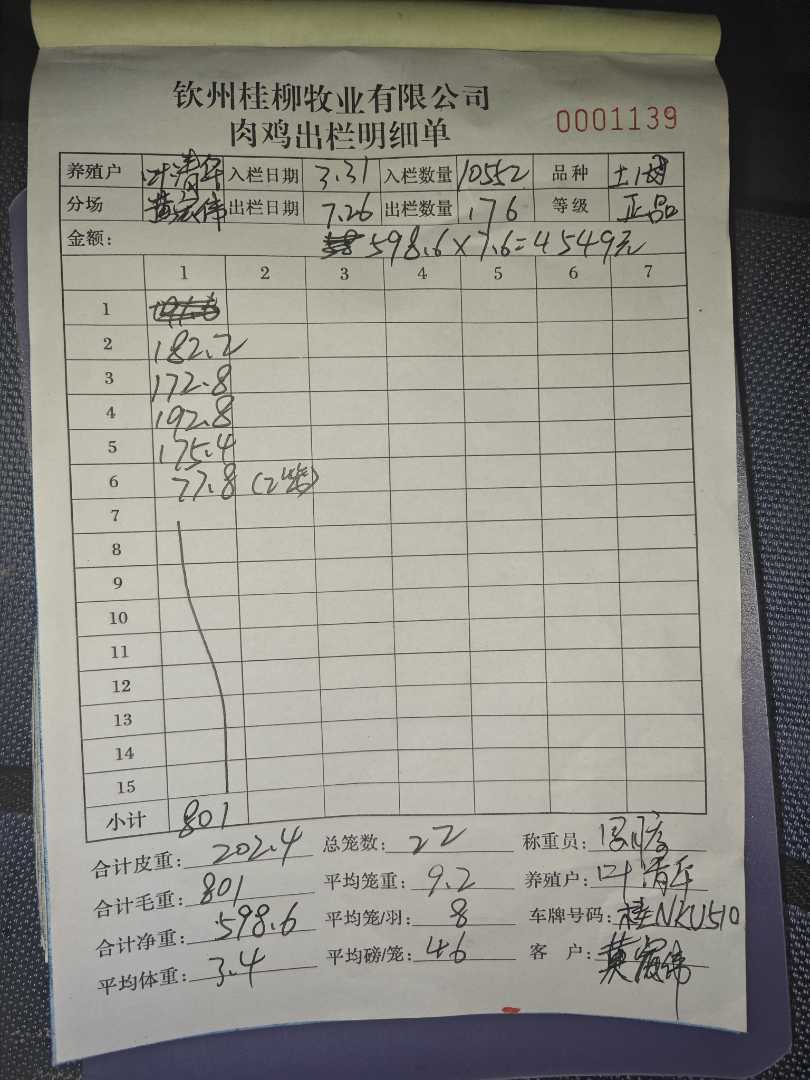 钦州桂柳牧业有限公司
肉鸡出栏明细单 0001139
养殖户 叶清华 入栏日期 3.31 入栏数量 10552 品种
分场 黄宏伟 出栏日期 7.26 出栏数量 176 等级 正品
金额: 598.6×7.6=4549元
1 2 3 4 5 6 7
1
2 182.2
3 172.8
4 192.8
5 175.4
6 77.8 (2笼)
7
8
9
10
11
12
13
14
15
小计 801
合计皮重: 202.4 总笼数: 22 称重员:
合计毛重: 801 平均笼重: 9.2 养殖户: 叶清华
合计净重: 598.6 平均笼/羽: 8 车牌号码: 桂NKU510
平均体重: 3.4 平均磅/笼: 46 客 户: 黄宏伟